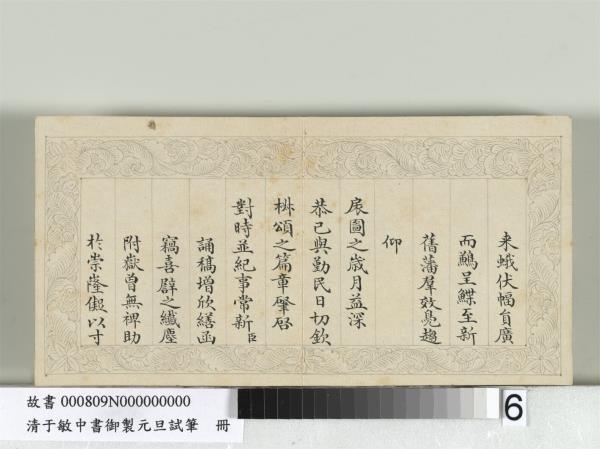 来蛾伏幅員廣
而鷁呈鰈至新
舊藩羣效鳧趨
仰
扆圖之歲月益深
恭己與勤民日切欽
椒頌之篇章肈啓
對時並紀事常新臣
誦稿增欣繕函
竊喜辟之纎塵
附嶽曾無裨助
扵崇隆儗以寸
故書 000809N000000000
清于敏中書御製元旦試筆 冊
6